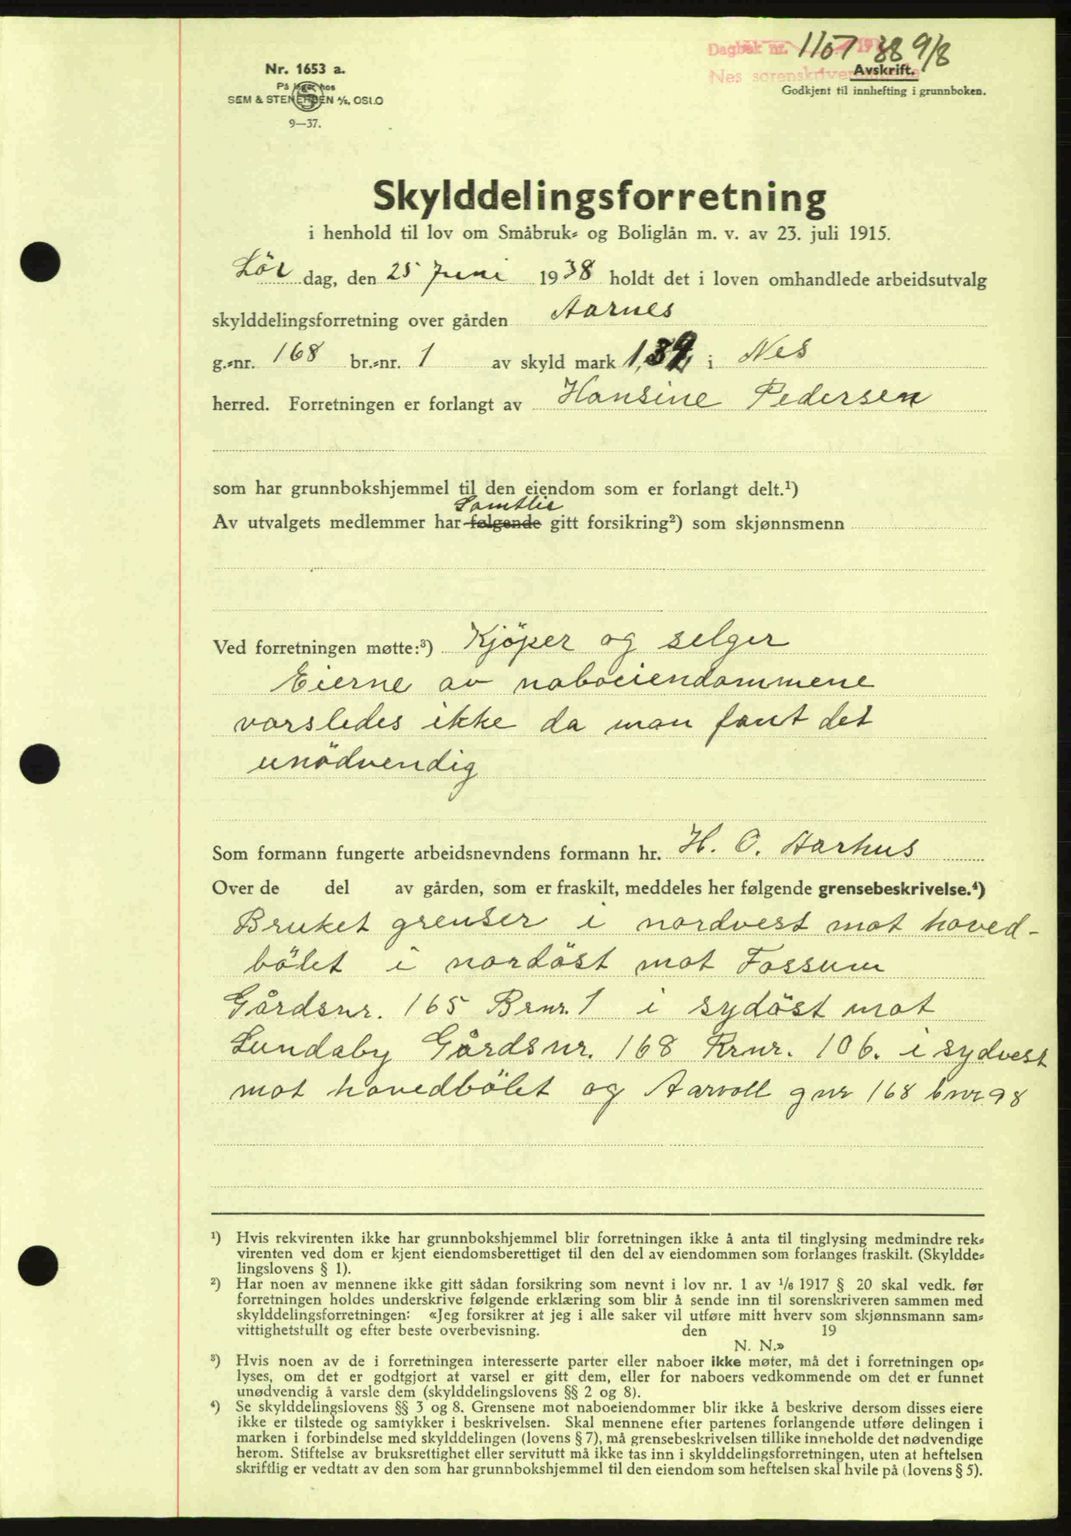 Dagbok nr. 1107 1938 9/8
Nes sorenskriverembede
Avskrift.
Godkjent til innhefting i grunnboken.
Nr. 1653 a.
På lager hos
SEM & STENERSEN A/S, OSLO
9—37.
Skylddelingsforretning
i henhold til lov om Småbruk- og Boliglån m. v. av 23. juli 1915.
Lör dag, den 25 Juni 1938 holdt det i loven omhandlede arbeidsutvalg
skylddelingsforretning over gården Aarnes
g.-nr. 168 br.-nr. 1 av skyld mark i Nes
herred. Forretningen er forlangt av Hansine Pedersen
som har grunnbokshjemmel til den eiendom som er forlangt delt.¹)
Samtlie
Av utvalgets medlemmer har følgende gitt forsikring²) som skjønnsmenn
Ved forretningen møtte:³) Kjöper og selger
Eierne av naboeiendommene
varsledes ikke da man fant det
unödvendig
Som formann fungerte arbeidsnevndens formann hr. H. O. Aarhus
Over de del av gården, som er fraskilt, meddeles her følgende grensebeskrivelse.⁴)
Bruket grenser i nordvest mot hoved-
bölet i nordöst mot Fossum
Gårdsnr. 165 Brnr. 1 i sydöst mot
Lundaby Gårdsnr. 168 Brnr. 106. i sydvest
mot hovedbölet og Aarvoll gnr 168 bnr 98
¹) Hvis rekvirenten ikke har grunnbokshjemmel blir forretningen ikke å anta til tinglysing medmindre rek-
virenten ved dom er kjent eiendomsberettiget til den del av eiendommen som forlanges fraskilt. (Skyldde-
lingslovens § 1).
²) Har noen av mennene ikke gitt sådan forsikring som nevnt i lov nr. 1 av 1/6 1917 § 20 skal vedk. før
forretningen holdes underskrive følgende erklæring som blir å sende inn til sorenskriveren sammen med
skylddelingsforretningen: «Jeg forsikrer at jeg i alle saker vil utføre mitt hverv som skjønnsmann sam-
vittighetsfullt og efter beste overbevisning. den 19
N. N.»
³) Hvis noen av de i forretningen interesserte parter eller naboer ikke møter, må det i forretningen op-
lyses, om det er godtgjort at varsel er gitt dem, eller for naboers vedkommende om det er funnet
unødvendig å varsle dem (skylddelingslovens §§ 2 og 8).
⁴) Se skylddelingslovens §§ 3 og 8. Grensene mot naboeiendommer blir ikke å beskrive dersom disses eiere
ikke er tilstede og samtykker i beskrivelsen. Skal mennene efter partenes forlangende utføre delingen i
marken i forbindelse med skylddelingen (lovens § 7), må grensebeskrivelsen tillike inneholde det nødvendige
herom. Stiftelse av bruksrettighet eller servitutt må ikke tas inn i skylddelingsforretningen, uten at heftelsen
skriftlig er vedtatt av den som har grunnbokshjemmel til den eiendom som heftelsen skal hvile på (lovens § 5).